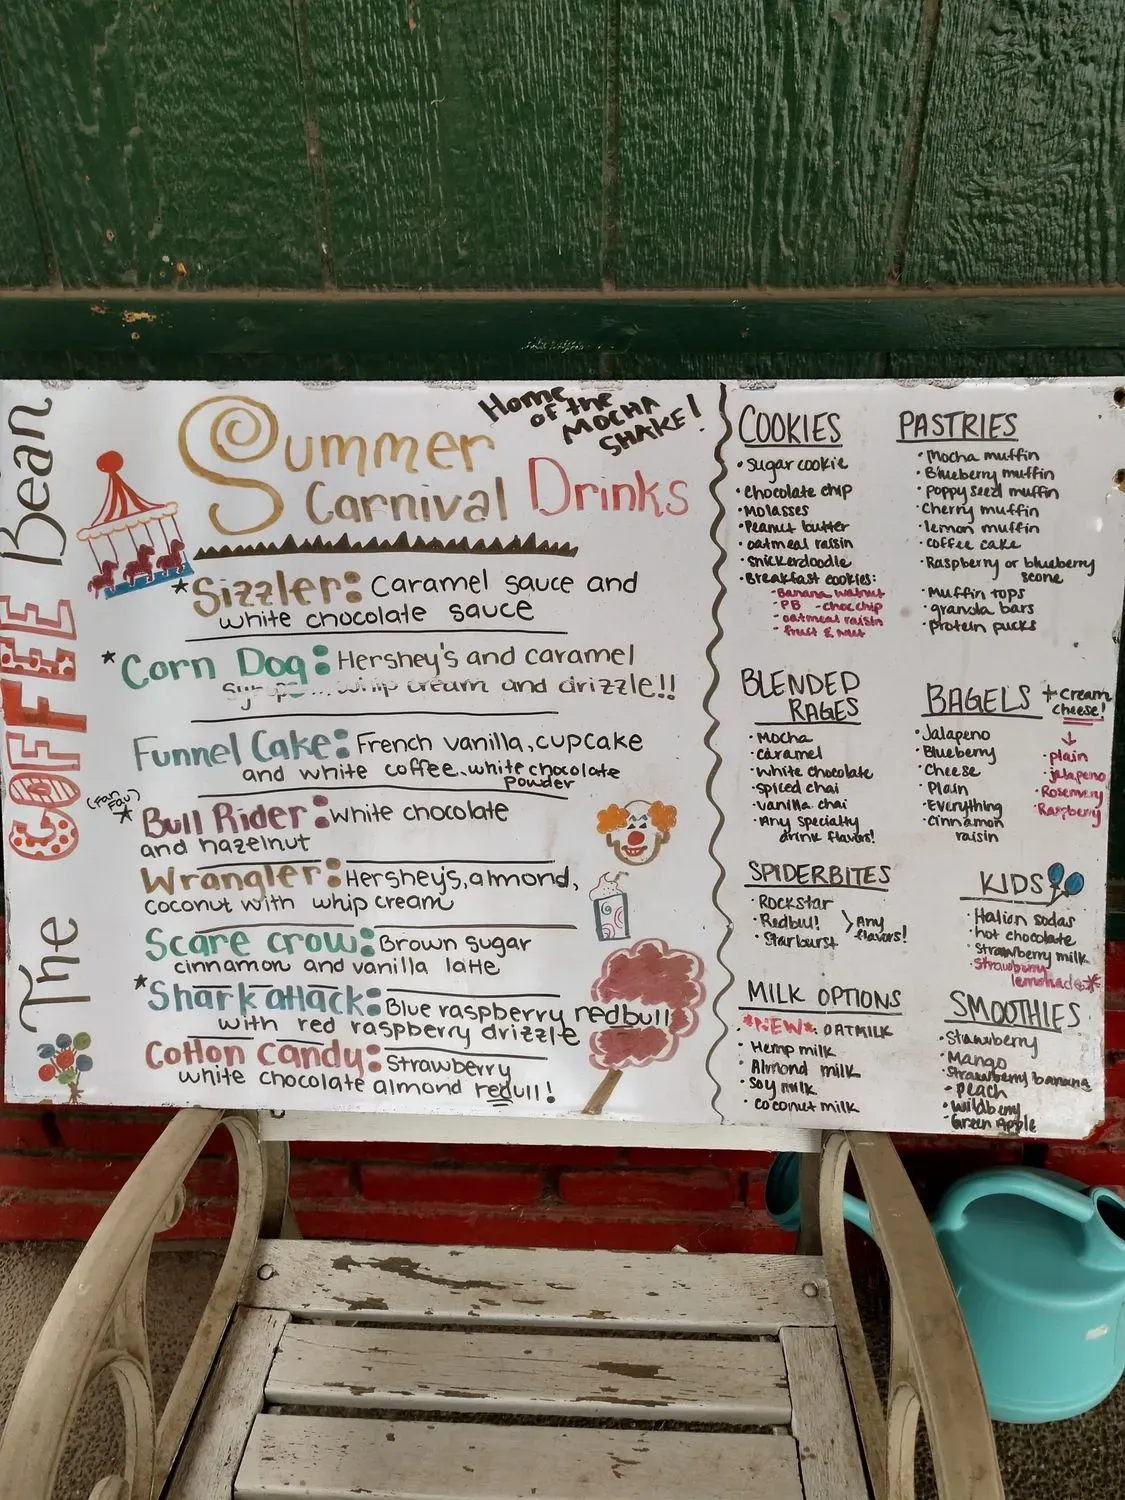 The COFFEE Bean
Home
of the
MOCHA
SHAKE!
Summer
Carnival Drinks
*Sizzler: Caramel sauce and
white chocolate sauce
*Corn Dog: Hershey's and caramel
whip cream and drizzle!!
Funnel Cake: French vanilla, cupcake
and white coffee. white chocolate
Powder
(Fan
Fav)
*Bull Rider: white chocolate
and hazelnut
Wrangler: Hershey's, almond,
coconut with whip cream
Scare crow: Brown sugar
cinnamon and vanilla latte
*Shark attack: Blue raspberry redbull
with red raspberry drizzle
Cotton Candy: Strawberry
white chocolate almond redull!
COOKIES
• sugar cookie
• chocolate chip
• Molasses
• Peanut butter
• oatmeal raisin
• snickerdoodle
• Breakfast cookies:
- Banana walnut
- PB - choc chip
- oatmeal raisin
- fruit & nut
PASTRIES
• Mocha muffin
• Blueberry muffin
• poppyseed muffin
• Cherry muffin
• lemon muffin
• coffee cake
• Raspberry or blueberry
scone
• Muffin tops
• granola bars
• protein pucks
BLENDED
RAGES
• Mocha
• caramel
• white chocolate
• spiced chai
• vanilla chai
• Any specialty
drink flavors!
BAGELS + cream
cheese!
• Jalapeno
• Blueberry
• Cheese
• Plain
• Everything
• cinnamon
raisin
• plain
• jalapeno
• Rosemary
• Raspberry
SPIDERBITES
• Rockstar
• Redbull!
• Starburst
Any
flavors!
KIDS
• Italian sodas
• hot chocolate
• Strawberry milk
• Strawberry
lemonade*
MILK OPTIONS
*NEW*: OATMILK
• Hemp milk
• Almond milk
• Soy milk
• coconut milk
SMOOTHIES
• Strawberry
• Mango
• Strawberry banana
• peach
• Wildberry
• Green Apple